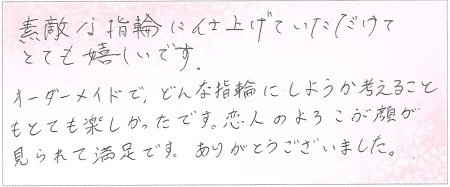 素敵な指輪に仕上げていただけて
とても嬉しいです。
オーダーメイドで、どんな指輪にしようか考えること
もとても楽しかったです。恋人のよろこぶ顔が
見られて満足です。ありがとうございました。